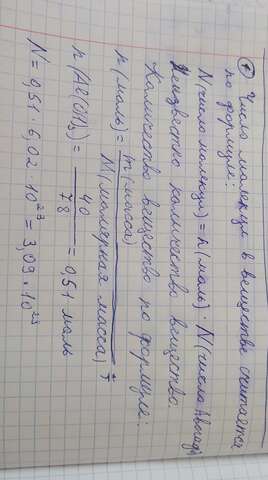 ① Число молекул в веществе считается
по формуле:
N(число молекул) = n(моль) · N(число Авогад)
Неизвестно количество вещества.
Количество вещество по формуле:
n(моль) = m(масса) / M(молярная масса)
n(Al(OH)₃) = 40 / 78 = 0,51 моль
N = 0,51 · 6,02 · 10²³ = 3,09 · 10²³